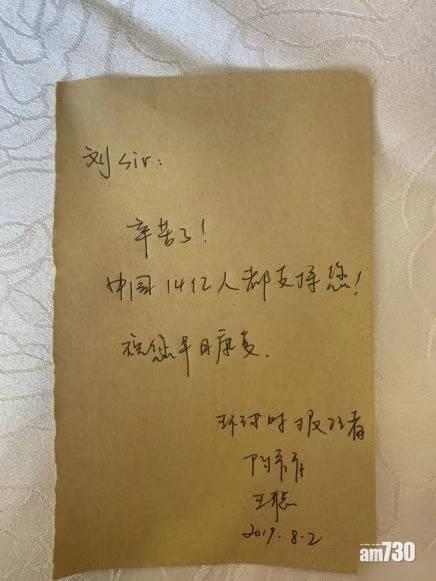 刘Sir:
辛苦了!
中国14亿人都支持您!
祝您早日康复.
环球时报记者
王聪
2019.8.2
am730